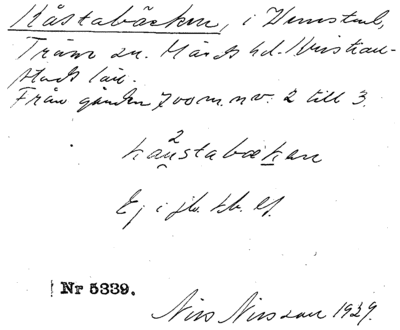 Kåstabäcken, i Venstad,
Träne sn. Härads hd. Kristian-
stads län.
Från gården 700 m. nv. 2 till 3.
2
kåustabækan
Ej i jb. tb. el.
Nr 5339.
Nils Nilsson 1929.